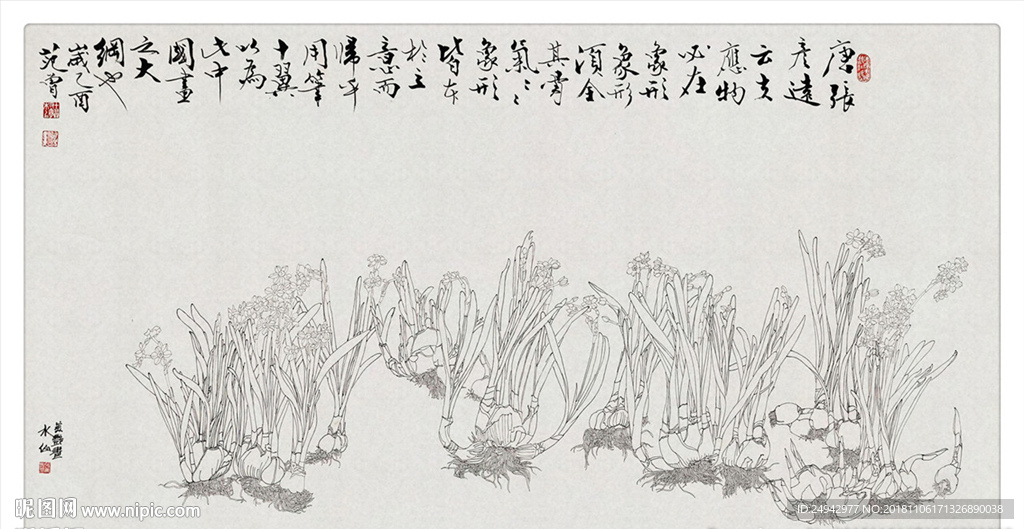 唐張
彥遠
云夫
應物
必在
象形
象形
須全
其骨
氣〻〻
象形
皆本
於立
意而
歸乎
用筆
十翼
以為
此中
國畫
之大
綱也
歲乙酉
范曾
水仙
昵图网 www.nipic.com
ID:24942977 NO:20181106171326890038